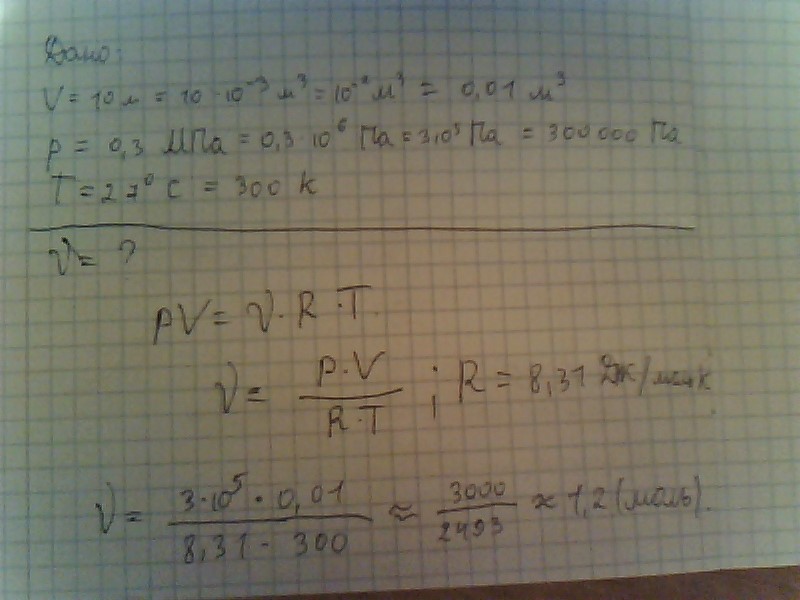 Дано:
V = 10 л = 10 · 10⁻³ м³ = 10⁻² м³ = 0,01 м³
p = 0,3 МПа = 0,3 · 10⁶ Па = 3·10⁵ Па = 300 000 Па
T = 27⁰ C = 300 K
ν = ?
pV = ν · R · T.
ν = P·V / R·T ; R = 8,31 Дж/моль·К.
ν = 3·10⁵ · 0,01 / 8,31 · 300 ≈ 3000 / 2493 ≈ 1,2 (моль).